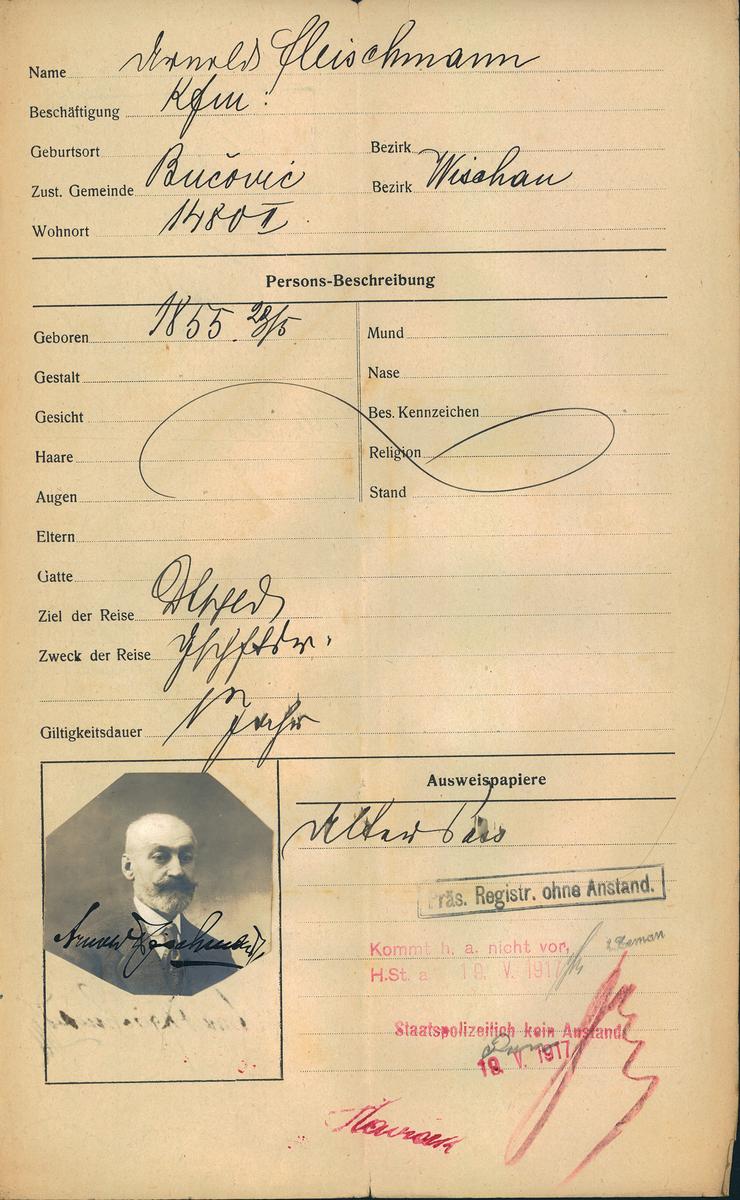 Name Arnold Fleischmann
Beschäftigung Kfm.
Geburtsort Bezirk
Zust. Gemeinde Bučovic Bezirk Wischau
Wohnort 1480 II
Persons-Beschreibung
Geboren 1855 28/5 Mund
Gestalt Nase
Gesicht Bes. Kennzeichen
Haare Religion
Augen Stand
Eltern
Gatte
Ziel der Reise
Zweck der Reise
Giltigkeitsdauer 1 Jahr
Ausweispapiere
Alter Pass
Präs. Registr. ohne Anstand.
Arnold Fleischmann
Kommt h. a. nicht vor,
H.St. a 19. V. 1917
Staatspolizeilich kein Anstand.
19. V. 1917